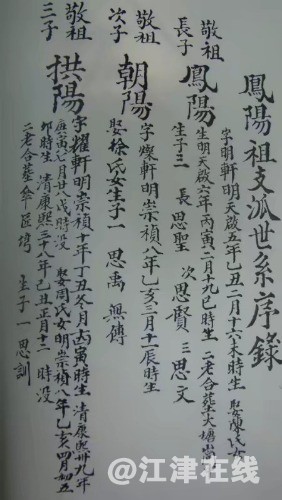 鳳陽祖支派世系序錄
敬祖長子
鳳陽
字明軒明天啟五年乙丑二月十六未時生 娶陳氏
生明天啟六年丙寅二月十九巳時生 二老合葬大塘
生子三 長思聖 次思賢 三思文
敬祖次子
朝陽
字燦軒明崇禎八年乙亥三月十一辰時生
娶徐氏女生子一 思禹 無傳
敬祖三子
拱陽
字耀軒明崇禎十年丁丑冬月 寅時生 清康熙卅九年
庚寅七月廿八戌時没 娶周氏女明崇禎八年乙亥四月初五
卯時生 清康熙三十八年己丑正月十二 時没
二老合葬傘 生子一思訓
@江津在线